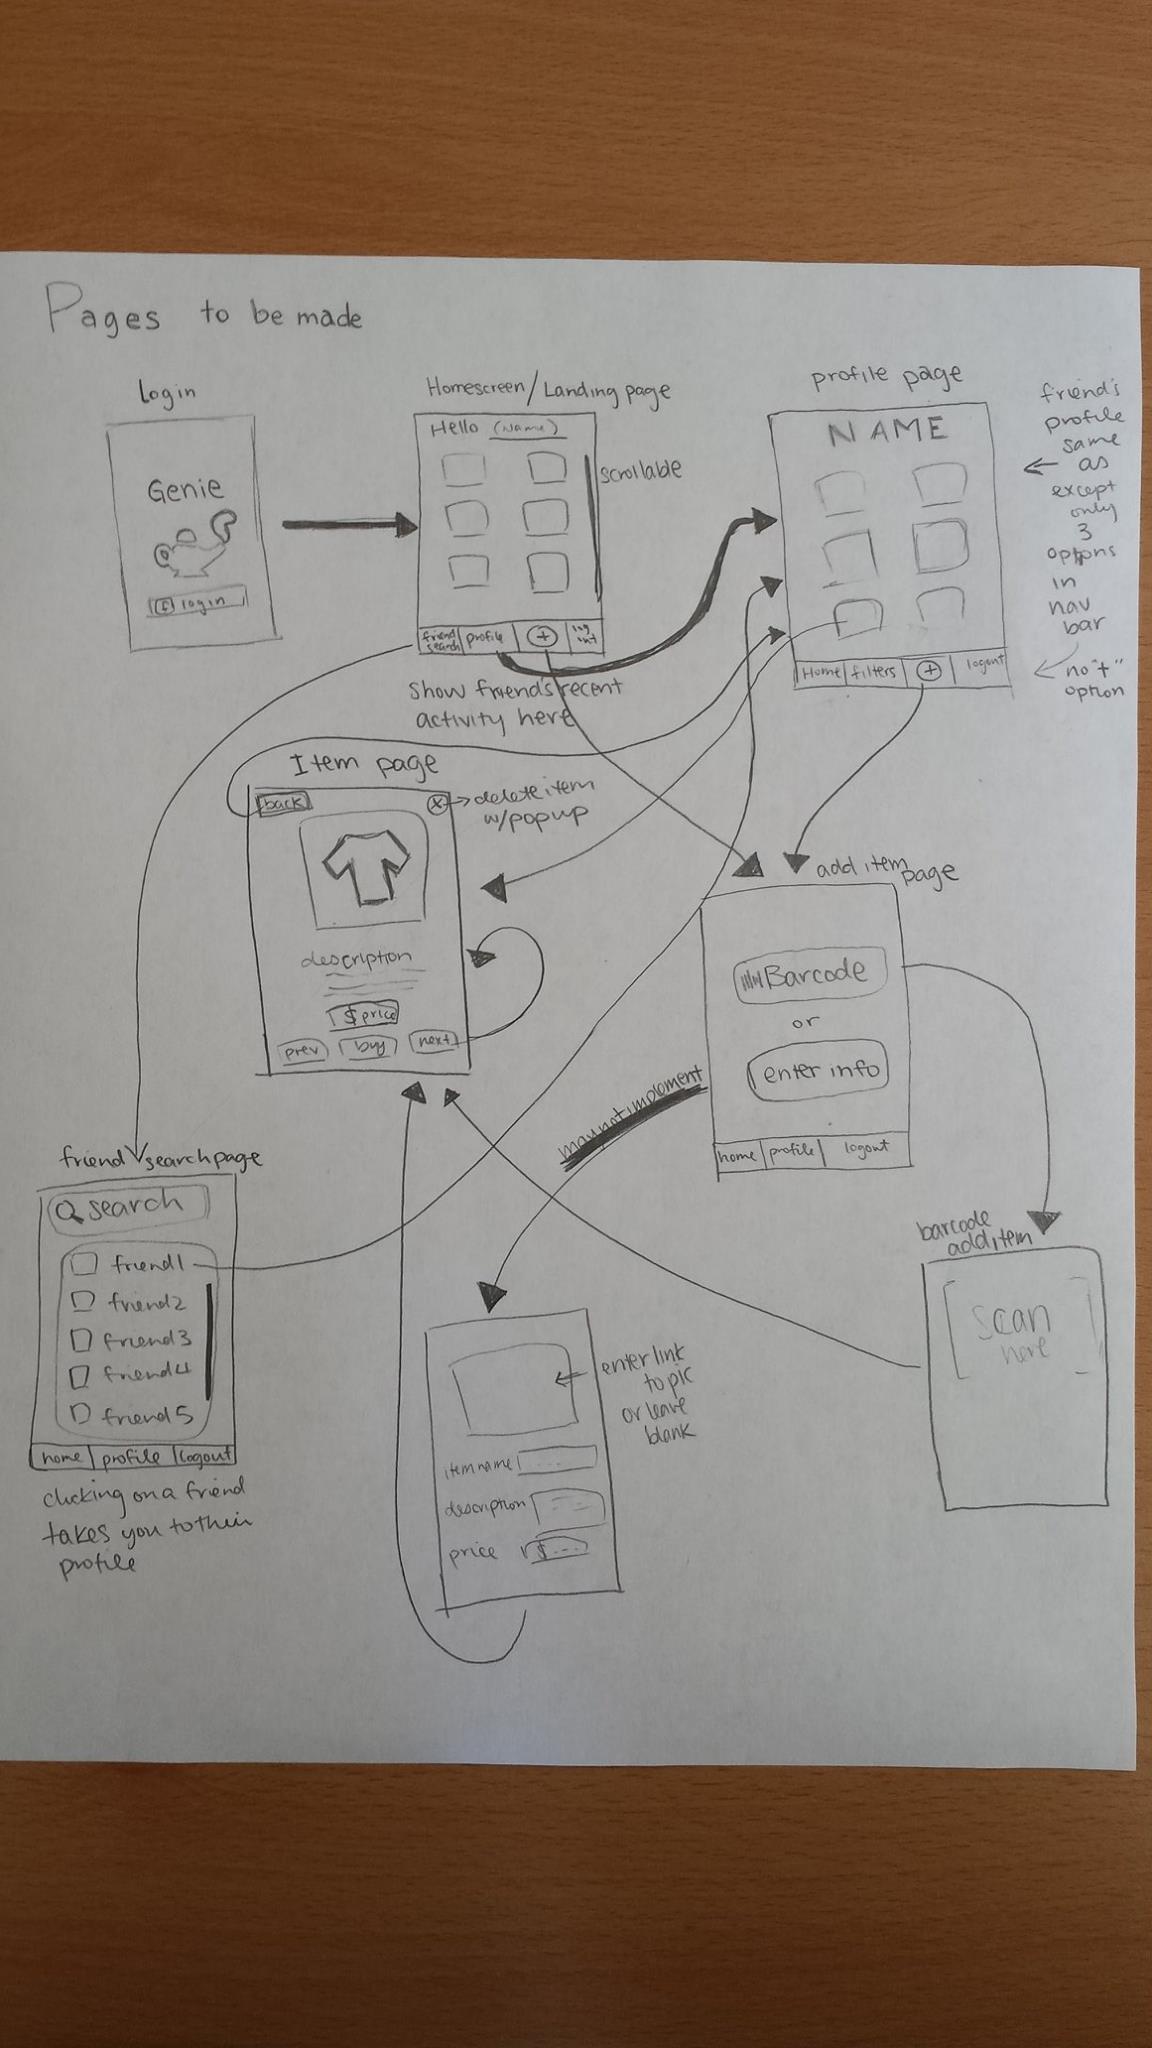 Pages to be made
login
Genie
f login
Homescreen/Landing page
Hello (Name)
scrollable
friend search
profile
+
log out
show friend's recent
activity here
profile page
NAME
Home
filters
+
logout
friend's
profile
same
as
except
only
3
options
in
nav
bar
no "+"
option
Item page
back
x
delete item
w/popup
description
$ price
prev
buy
next
add item
page
Barcode
or
enter info
home
profile
logout
may not implement
friend search page
search
friend1
friend2
friend3
friend4
friend5
home
profile
logout
clicking on a friend
takes you to their
profile
enter link
to pic
or leave
blank
item name
description
price
$...
barcode
add item
scan
here